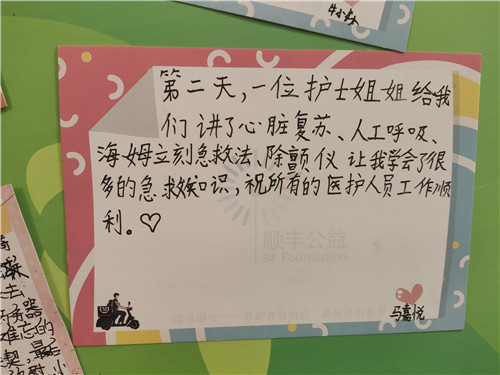 牛小灿
第二天，一位护士姐姐给我
们讲了心脏复苏、人工呼吸、
海姆立刻急救法、除颤仪 让我学会了很
多的急救知识，祝所有的医护人员工作顺
利。♡
顺丰公益
SF Foundation
马嘉悦
去
难忘的
契，最